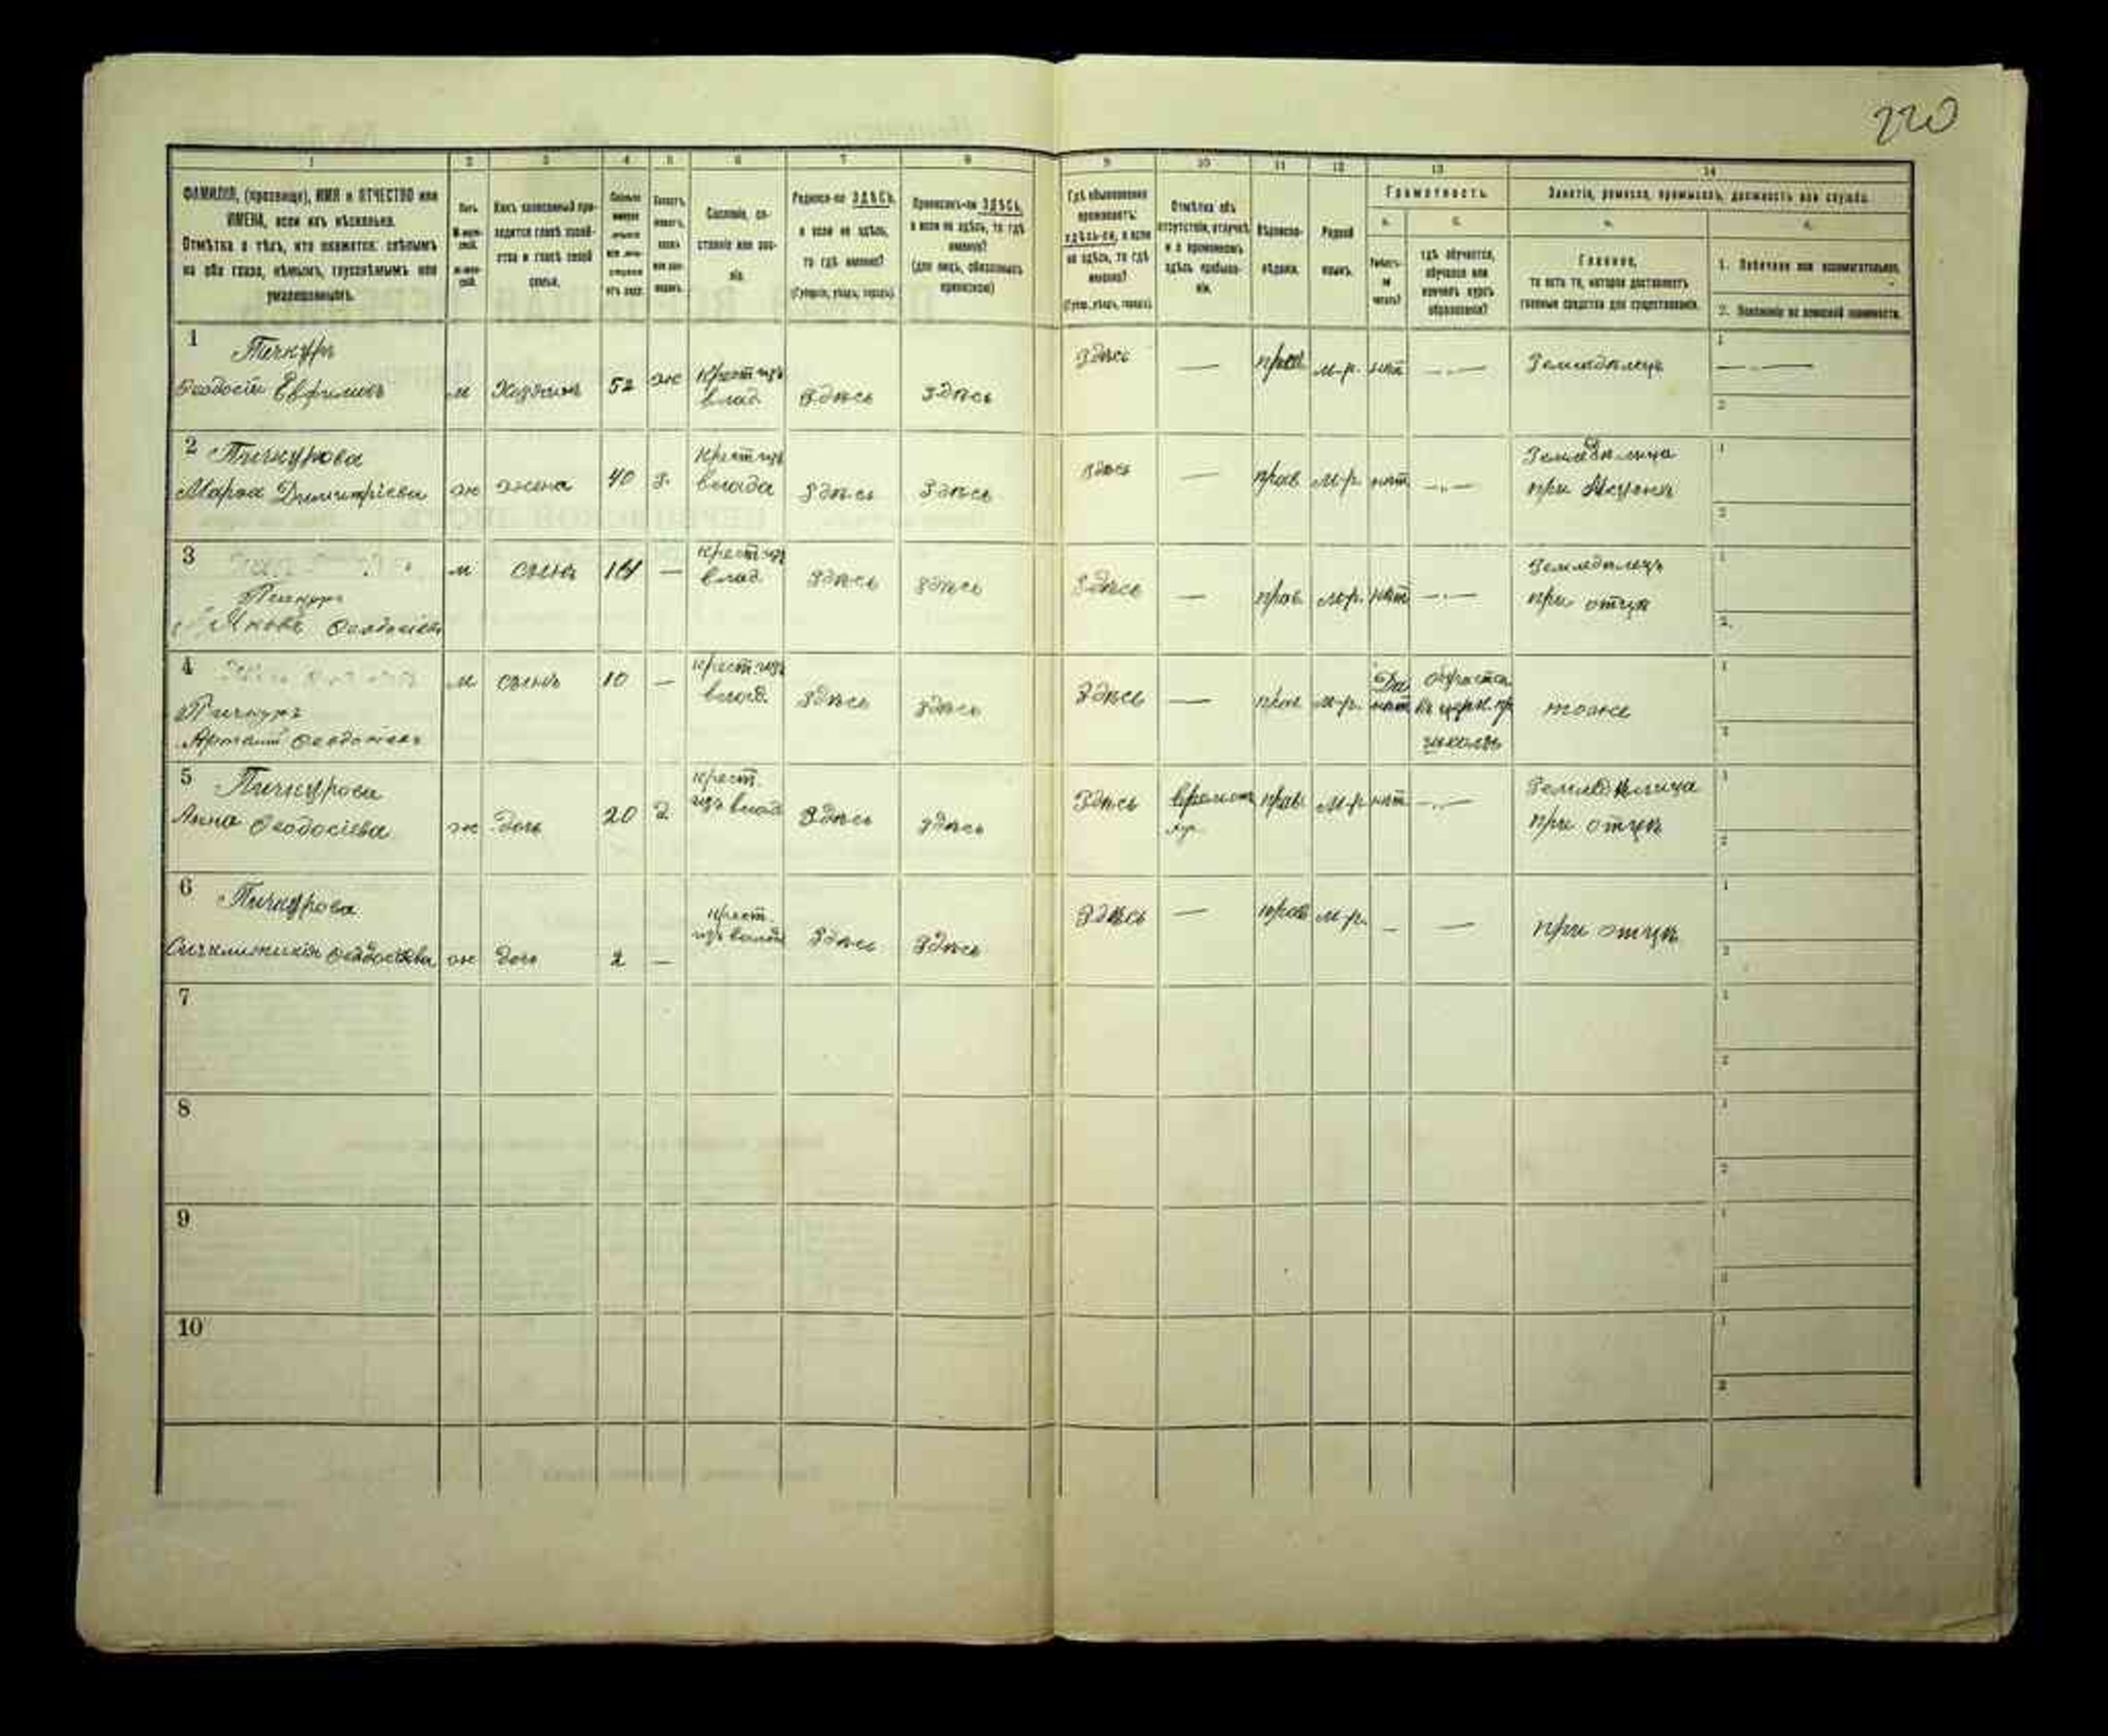 220
1 2 3 4 5 6 7 8 9 10 11 12 13 14
ФАМИЛІЯ, (прозвище), ИМЯ и ОТЧЕСТВО или
ИМЕНА, если ихъ нѣсколько.
Отмѣтка о тѣхъ, кто окажется: слѣпымъ
на оба глаза, нѣмымъ, глухонѣмымъ или
умалишеннымъ.
Полъ.
Какъ записанный при-
ходится главѣ хозяй-
ства и главѣ своей
семьи.
Сословіе, со-
стояніе или зва-
ніе.
Родился-ли ЗДѢСЬ,
а если не здѣсь,
то гдѣ именно?
(Губернія, уѣздъ, городъ).
Приписанъ-ли ЗДѢСЬ,
а если не здѣсь, то гдѣ
именно?
(для лицъ, обязанныхъ
припискою)
Гдѣ обыкновенно
проживаетъ:
здѣсь-ли, а если
не здѣсь, то гдѣ
именно?
(Губ., уѣздъ, городъ).
Отмѣтка объ
отсутствіи, отлучкѣ
и о временномъ
здѣсь пребыва-
ніи.
Вѣроиспо-
вѣданіе.
Родной
языкъ.
Грамотность.
а. б.
Умѣетъ-
ли
читать?
гдѣ обучается,
обучался или
кончилъ курсъ
образованія?
Занятіе, ремесло, промыселъ, должность или служба.
Главное,
то есть то, которое доставляетъ
главныя средства для существованія.
1. Побочное или вспомогательное.
2. Положеніе по воинской повинности.
1 Пичкуръ
Феодосій Ефимовъ м Хозяинъ 52 ж Крест изъ влад Здѣсь Здѣсь Здѣсь — прав м-р. нѣт — Земледѣлецъ —
2 Пичкурова
Марфа Димитріева ж жена 40 з. Крест изъ влада Здѣсь Здѣсь Здѣсь — прав м-р. нѣт — Земледѣлица при
3 Пичкуръ
Яковъ Феодосіевъ м сынъ — крест изъ влад Здѣсь Здѣсь Здѣсь — прав. м-р. нѣт — Земледѣлецъ при отцѣ
4 Пичкуръ
Феодосіевъ м сынъ 10 — крест. изъ влад. Здѣсь Здѣсь Здѣсь — прав м-р. Да школѣ тоже
5 Пичкурова
Анна Феодосіева ж дочь 20 крест. изъ влад Здѣсь Здѣсь Здѣсь прав м-р нѣт — Земледѣлица при отцѣ
6 Пичкурова
Феодосіева ж дочь 2 — крест. изъ влад Здѣсь Здѣсь Здѣсь — прав м-р. — — при отцѣ
7
8
9
10